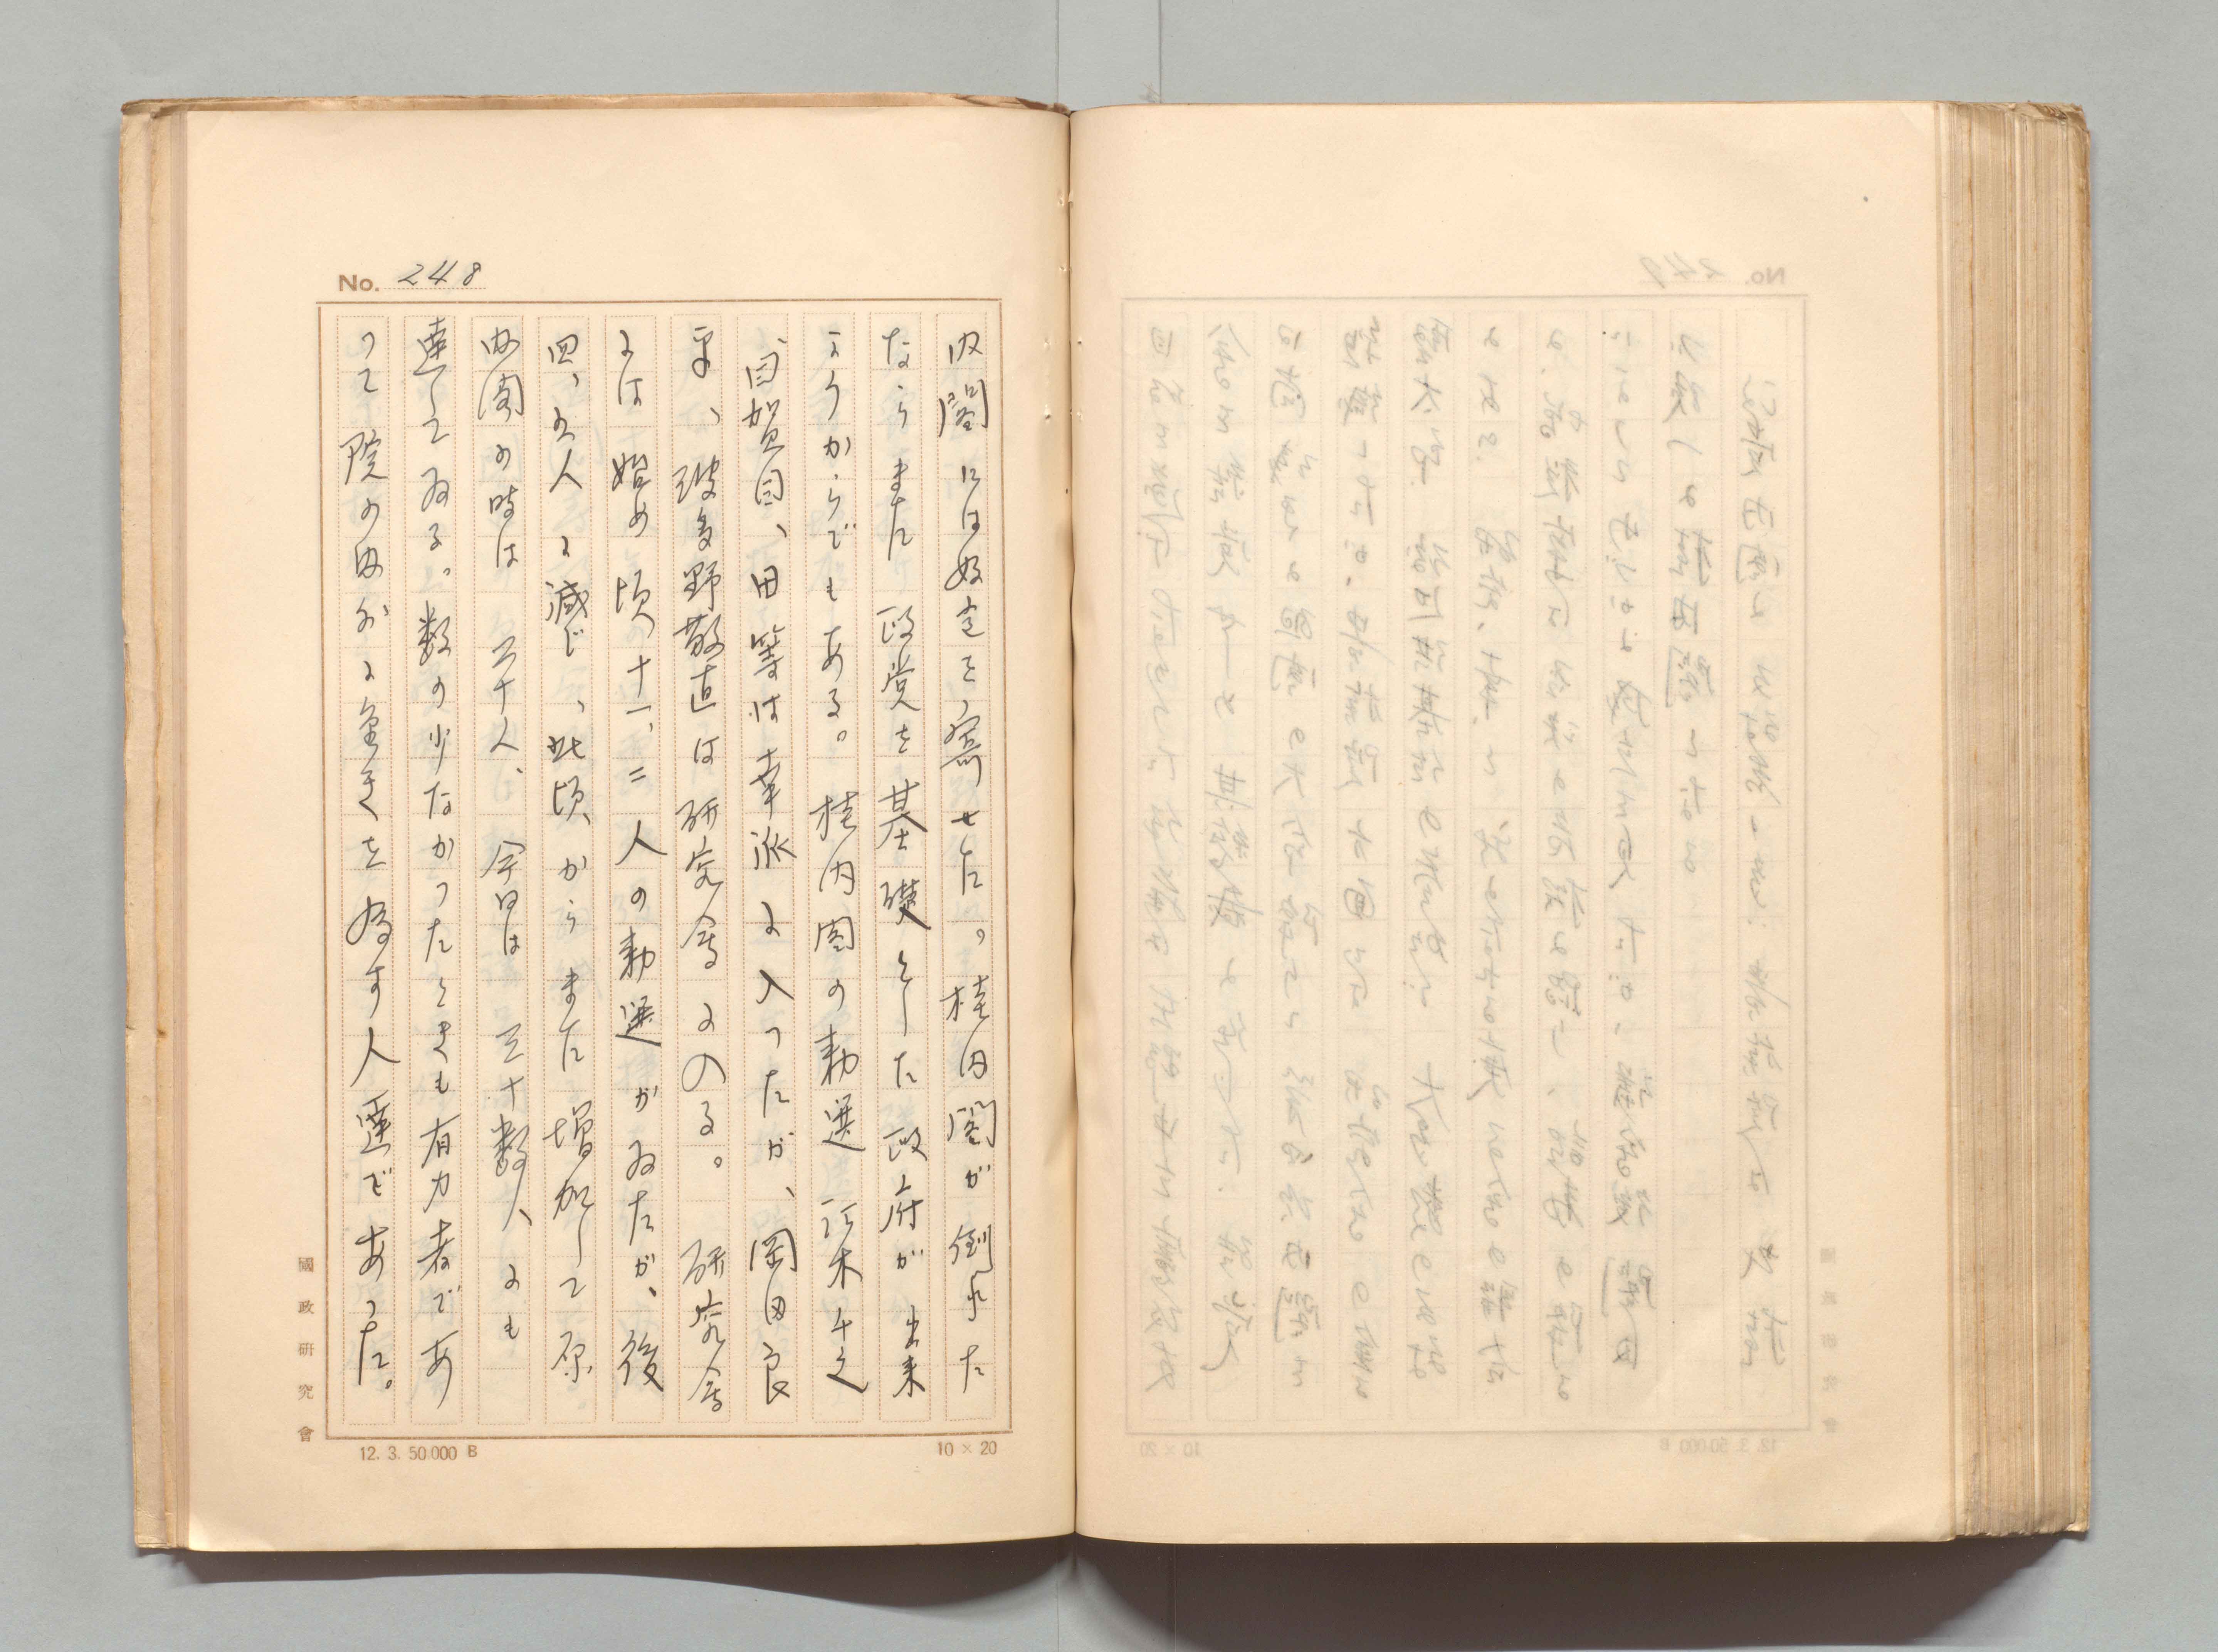 No. 248
内閣には好意を寄せた。桂内閣が倒れた
ならまた政党を基礎とした政府が出来
ようからでもある。桂内閣の勅選江木千之
、目賀田、田等は幸派に入つたが、岡田良
平、波多野敬直は研究会に入る。研究会
には始め頃十一、二人の勅選がゐたが、後
四、五人に減じ、此頃からまた増加して原
内閣の時は二十人、今日は三十数人にも
達してゐる。数の少なかつたときも有力者であ
つて院の内外に重きを為す人達であつた。
國政研究會
12. 3. 50.000 B
10 × 20